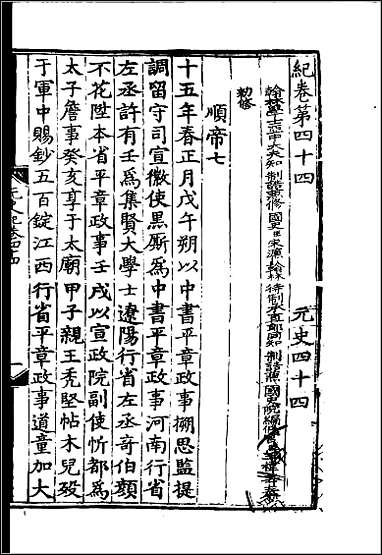 紀卷第四十四 元史四十四
翰林學士亞中大夫知制誥兼修國史臣宋濂翰林待制承直郎同知制誥兼國史院編修官臣王禕奉
勑修
順帝七
十五年春正月戊午朔以中書平章政事搠思監提
調留守司宣徽使黑厮爲中書平章政事河南行省
左丞許有壬爲集賢大學士遼陽行省左丞奇伯顔
不花陞本省平章政事壬戌以宣政院副使忻都爲
太子詹事癸亥享于太廟甲子親王禿堅帖木兒歿
于軍中賜鈔五百錠江西行省平章政事道童加大